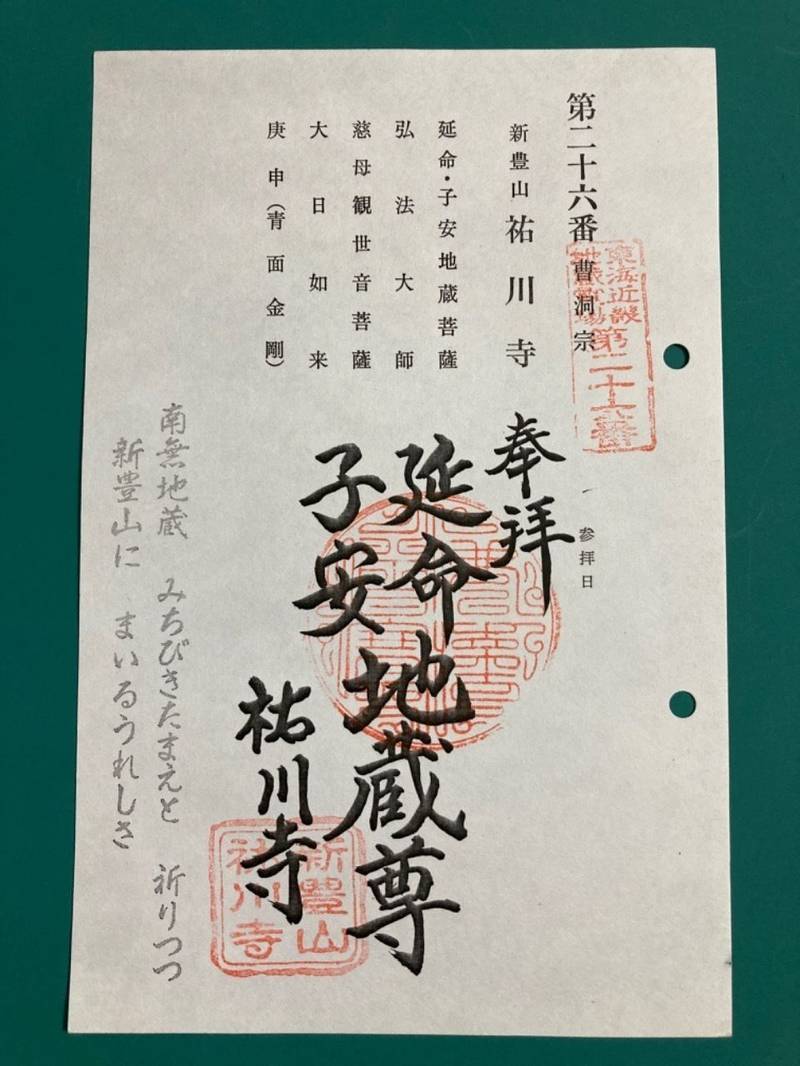 第二十六番 曹洞宗
東海近畿
地蔵霊場
第二十六番
参拝日
新豊山 祐川寺
延命・子安地蔵菩薩
弘法大師
慈母観世音菩薩
大日如来
庚申(青面金剛)
奉拝
延命
子安
地蔵尊
祐川寺
新豊山
祐川寺
南無地蔵 みちびきたまえと 祈りつつ
新豊山に まいるうれしさ